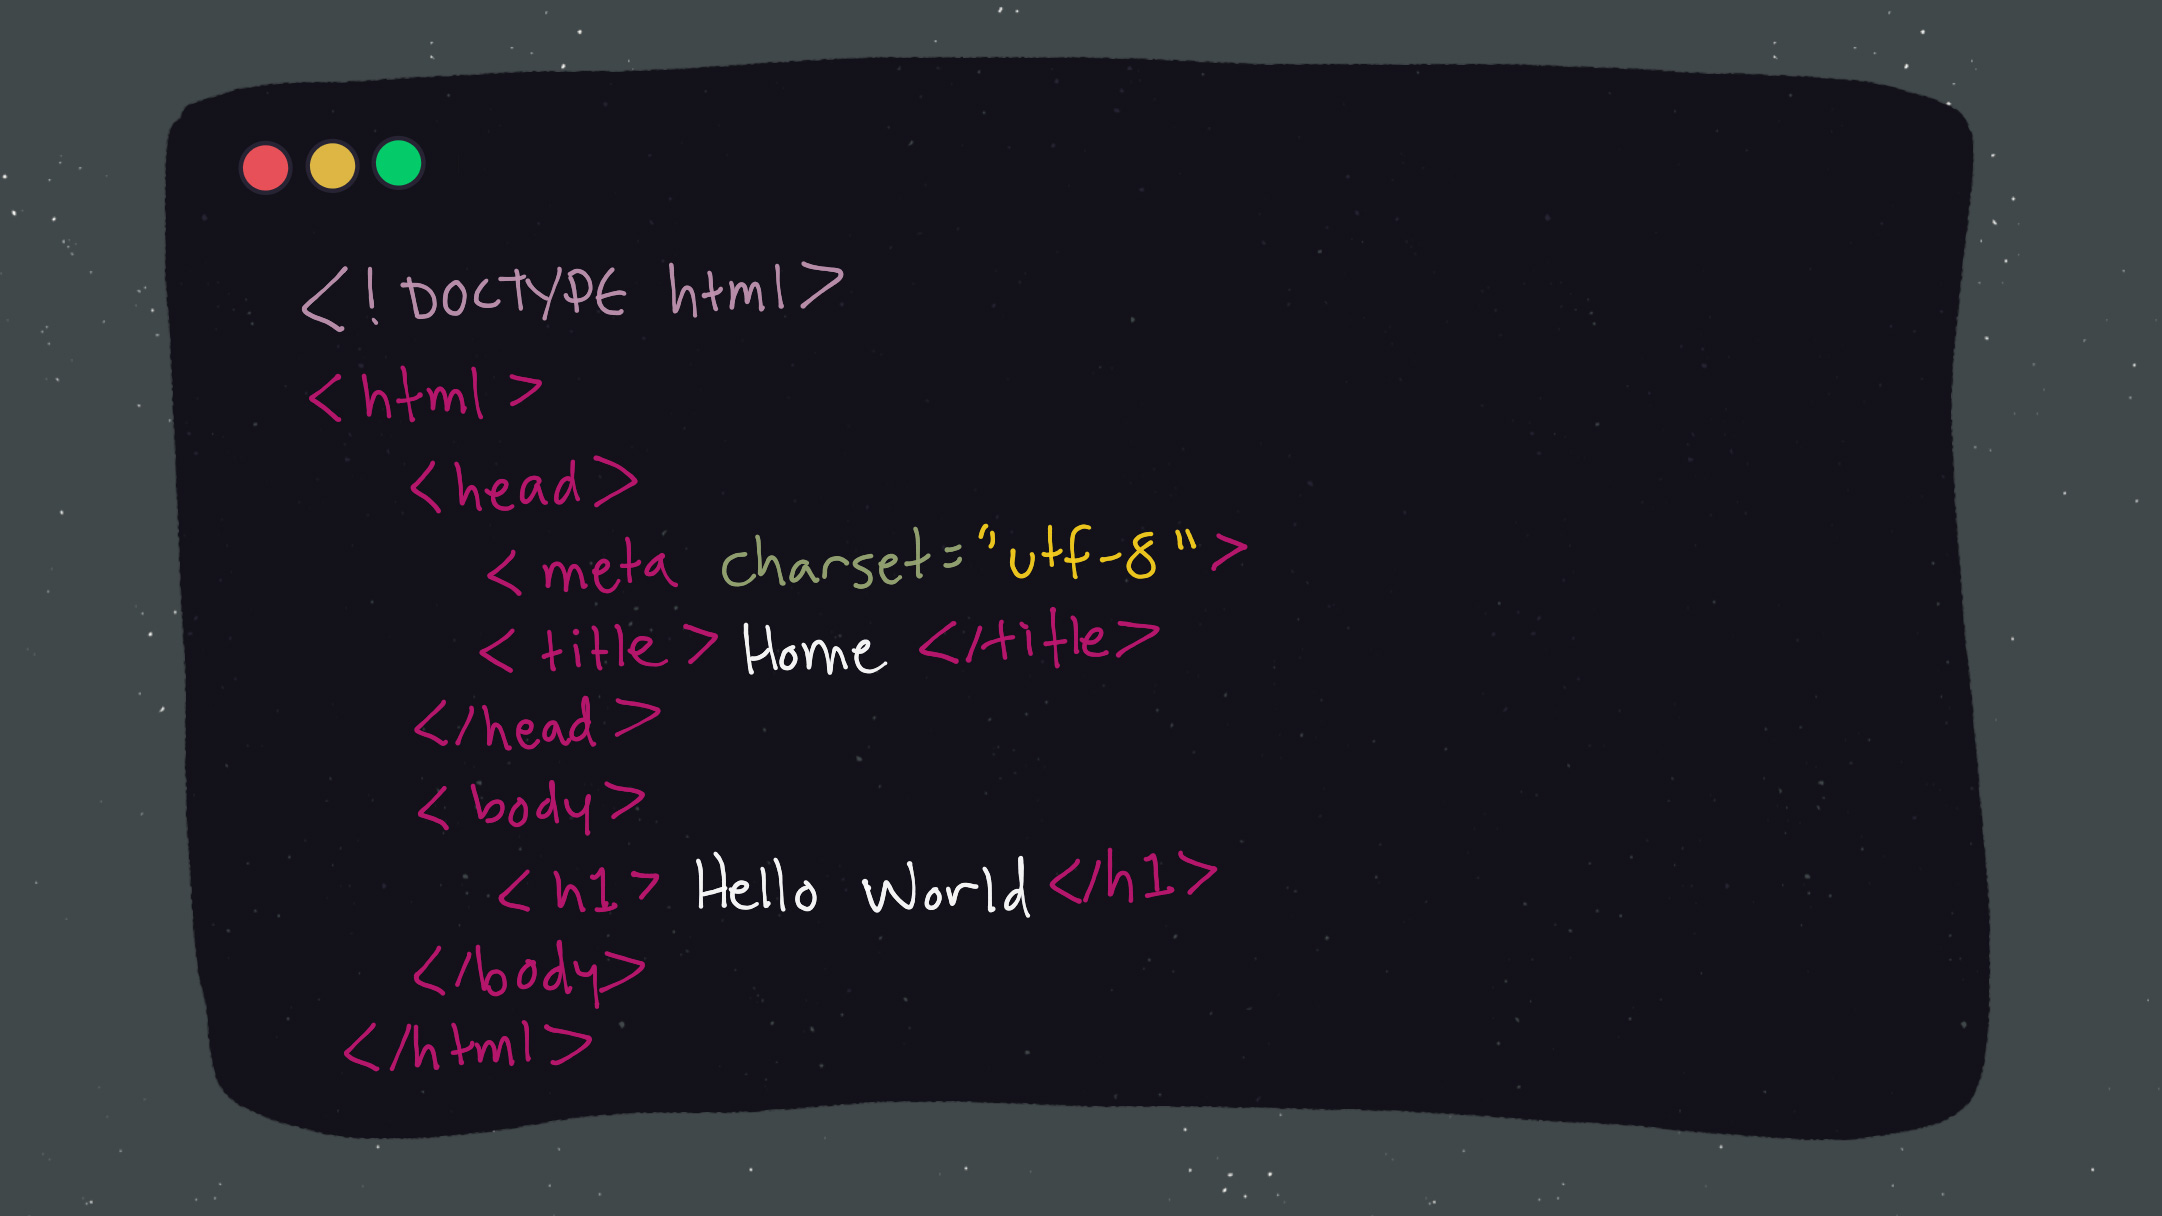 <! DOCTYPE html>
<html>
<head>
<meta charset="utf-8">
<title> Home </title>
</head>
<body>
<h1> Hello World </h1>
</body>
</html>